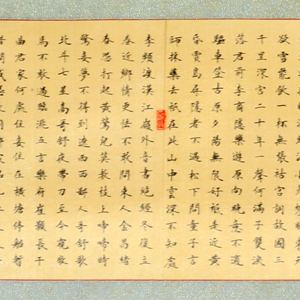 欲雪能飲一杯無張祜宮詞故國三
千里深宮二十年一聲何滿子雙淚
落君前李商隱樂遊原向晚意不適
驅車登古原夕陽無限好祇是近黃
昏賈島尋隱者不遇松下問童子言
師採藥去祇在此山中雲深不知處
李頻渡漢江嶺外音書絕經冬復立
春近鄉情更怯不敢問來人金昌緒
春怨打起黃鶯兒莫教枝上啼啼時
驚妾夢不得到遼西西鄙人哥舒歌
北斗七星高哥舒夜帶刀至今窺牧
馬不敢過臨洮五言樂府崔顥長干
曲君家何處住妾住在橫塘停船暫